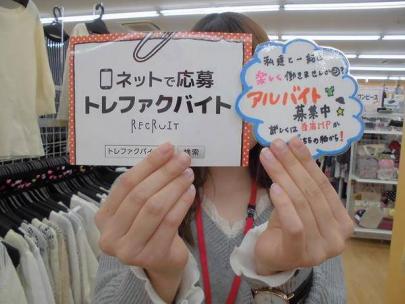 ネットで応募
トレファクバイト
RECRUIT
トレファクバイト
検索
私達と一緒に
楽しく働きませんか?
アルバイト
募集中☆
詳しくは
から!